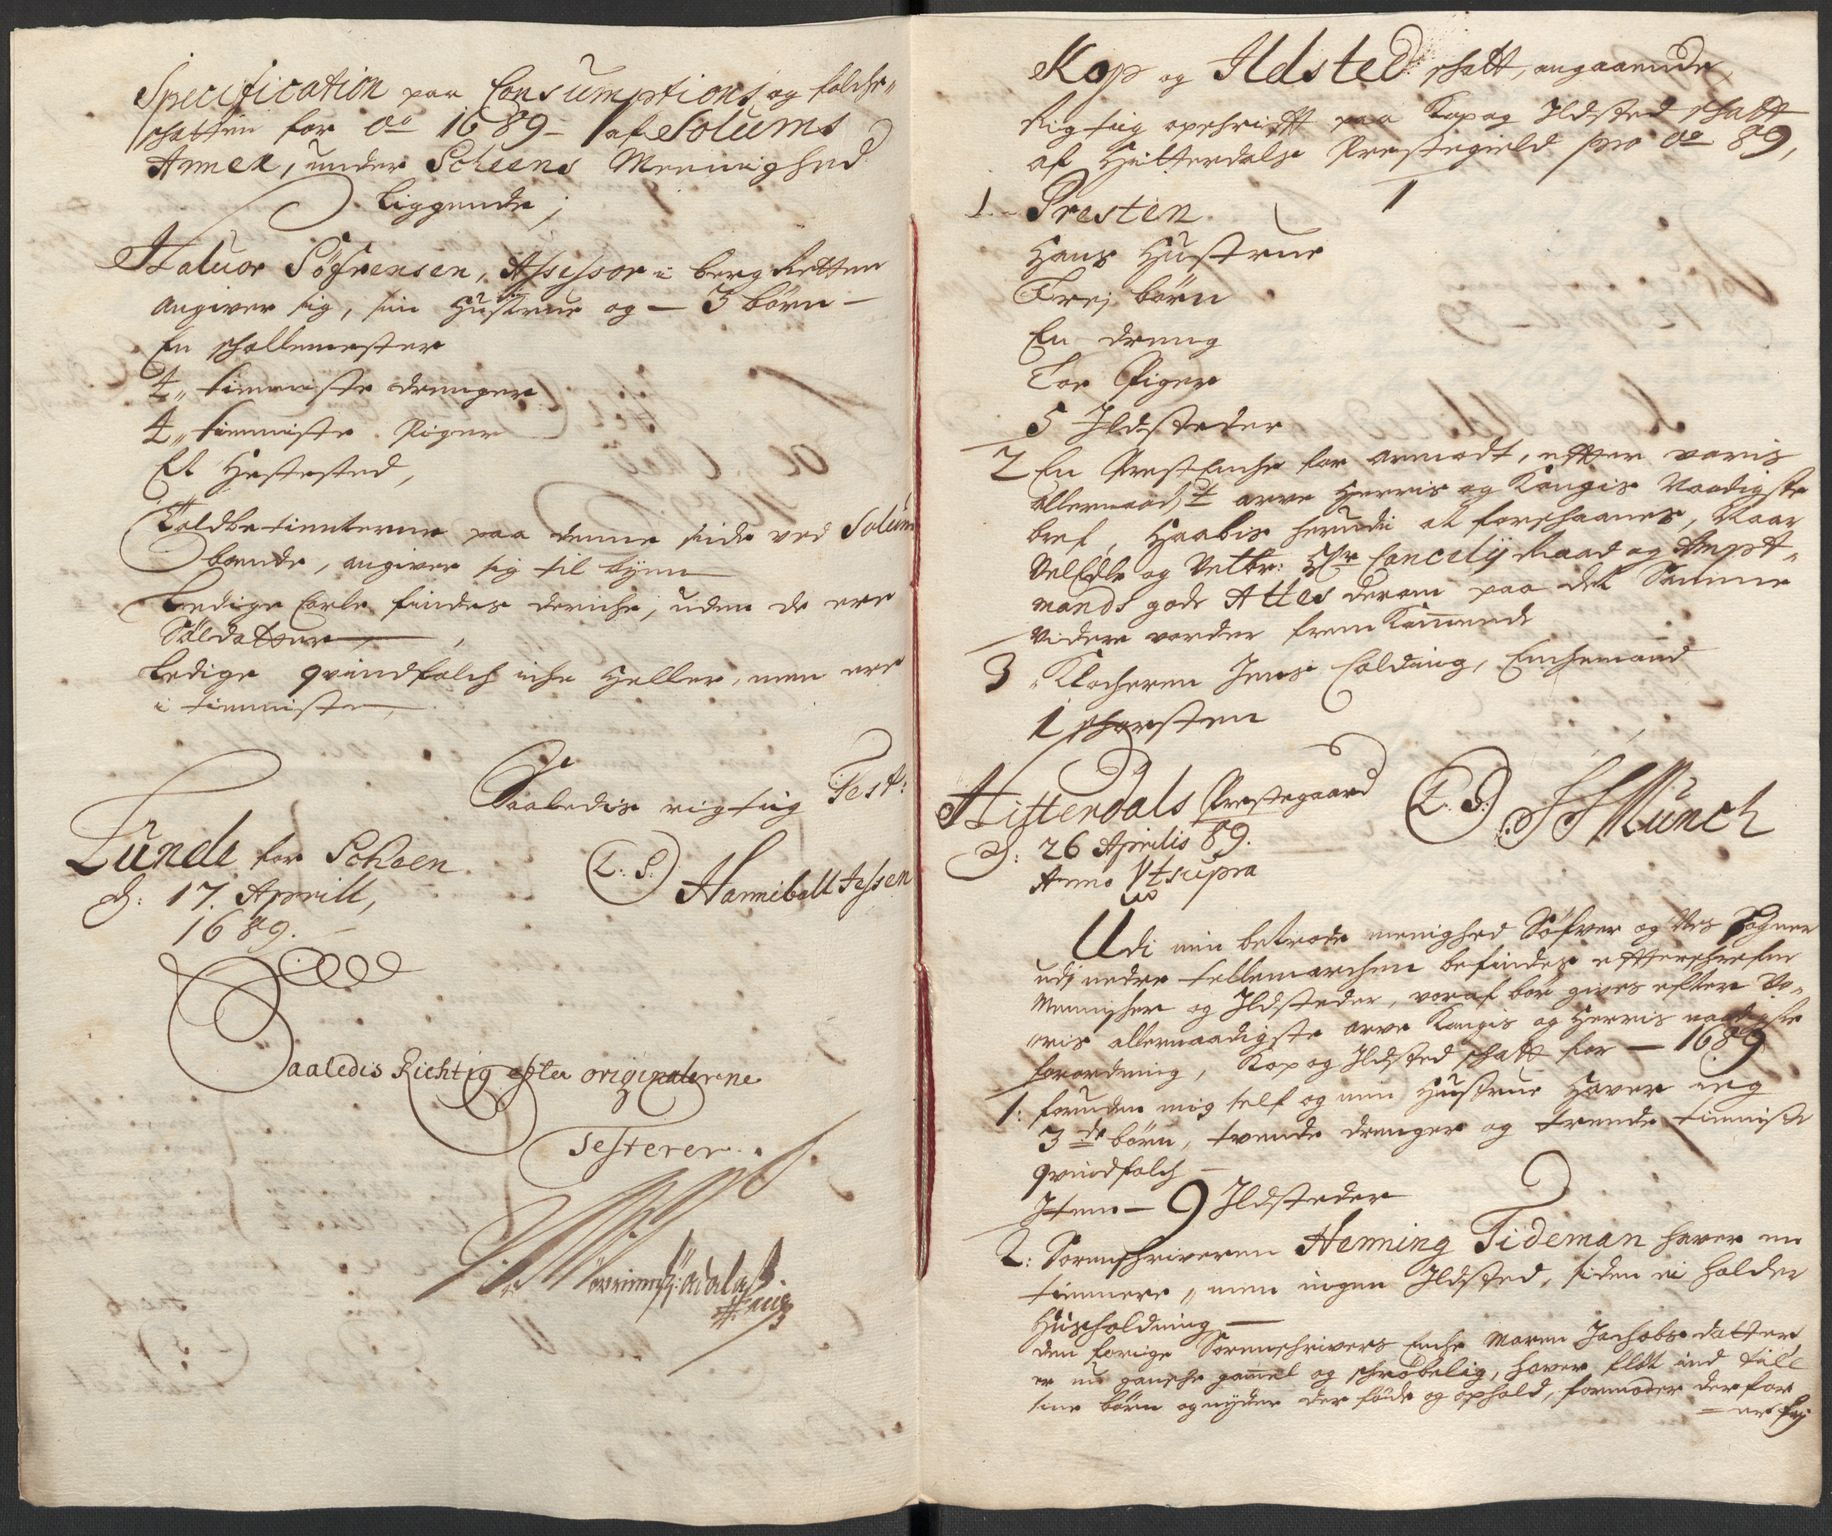 Specification paa Consumptions og folche-
schatten for Ao 1689 - af Solums
Annex, under Scheens Meenighed
liggende;
Haluor Söfrensen, Assessor i berg Retten
angiver sig, sin Hustrue og - 3 börn -
En schollemester
4 tienniste drenger
4 tienniste Piger
Et Hestested,
Toldbetienterne paa denne side ved Solum
boende, angiver sig til byen
Ledige Carle findes der iche, uden de ere
Soldatter,
Ledige qvindfolch iche Heller, men ere
i tienniste,
Saaledis rigtig Test:
Lunde for Scheen
d: 17. Aprill,
1689.
L. S. Hanniball Jessen
Saaledis Richtig efter originalerne
Testerer.
Kop og Ildsted schatt, angaaende,
Rigtig opschrifft paa Kop og Ildsted schatt
af Hitterdals Prestegield pro Ao 89,
1. Presten
Hans Hustrue
Trej börn
En dreng
Toe Piger
5 Ildsteder
2 En Prest Enche for armodt, efter voris
allernaadst arve Herris og Kongis Naadigste
bref, Haabis herudi at forschaanes, Naar
Velædle og Velbr: Hr Cancelij Raad og Ampt-
mands gode Attes derom paa det Samme
videre vorder frem Kommende
3 Klocheren Jens Colding, Enchemand
1 schorsten
Hitterdals Prestegaard
d: 26 Aprilis 89.
Anno Ut supra
L. S. Munch
Udi min betrode menighed Söfver og Nes Sogner
udj nedre tellemarchen befindes efterschrefne
Mennischer og Ildsteder, voraf bör gives efter Vo-
oris allernaadigste arve Kongis og Herris naadigste
forordning, Kop og Ildsted schatt for - 1689
1: foruden mig self og min Hustrue Haver ieg
3de börn, tvende drenger og trende tienniste
qvindfolch -
Item - 9 Ildsteder
2: Sorenschriveren Henning Tideman haver en
tiennere, men ingen Ildsted, siden ei holder
Husholdning -
den forige Sorenschrivers Enche Maren Jachobs datter
er nu gansche gammel og schröbelig, haver flöt ind till
sine börn og nyder der föde og ophold, formoder derfor
- er frj